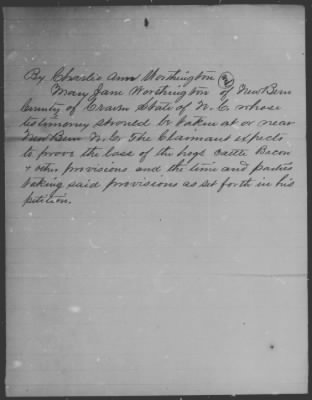 By Charlie Ann Worthington
Mary Jane Worthington of New Bern
County of Craven State of N.C. whose
testimony should be taken at or near
New Bern N.C. The Claimant expects
to prove the loss of the hogs cattle Bacon
& other provisions and the time and parties
taking said provisions as set forth in his
petition.